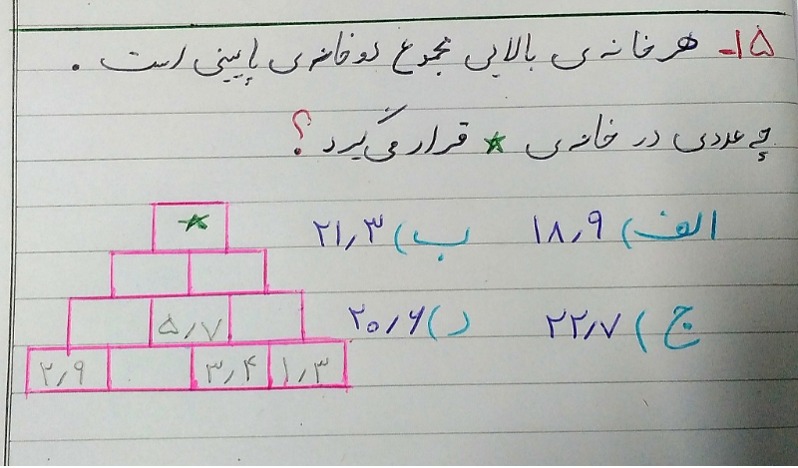 ۱۵- هر خانه ی بالایی مجموع دو خانه ی پایینی است .
چه عددی در خانه ی ☆ قرار می گیرد ؟
الف) ۱۸٫۹ ب) ۲۱٫۳
ج) ۲۲٫۷ د) ۲۰٫۶
☆
۵٫۷
۲٫۹ ۳٫۴ ۱٫۳